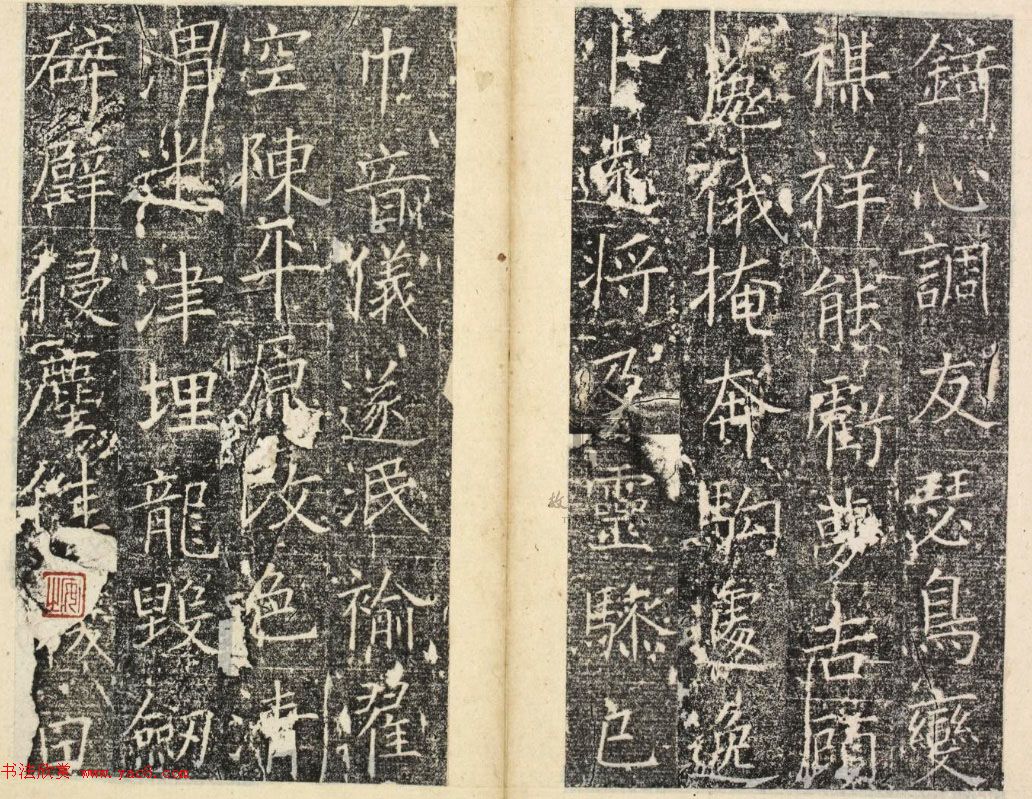 錡心調友瑟鳥變
祺祥能霸夢吉頎
巍儀掩奔駒處逸
卜遠將及靈驂已
巾音儀遂泯褕翟
空陳平原改色清
渭迷津埋龍毀劒
碎璧侵塵
田
书法欣赏 www.yac8.com